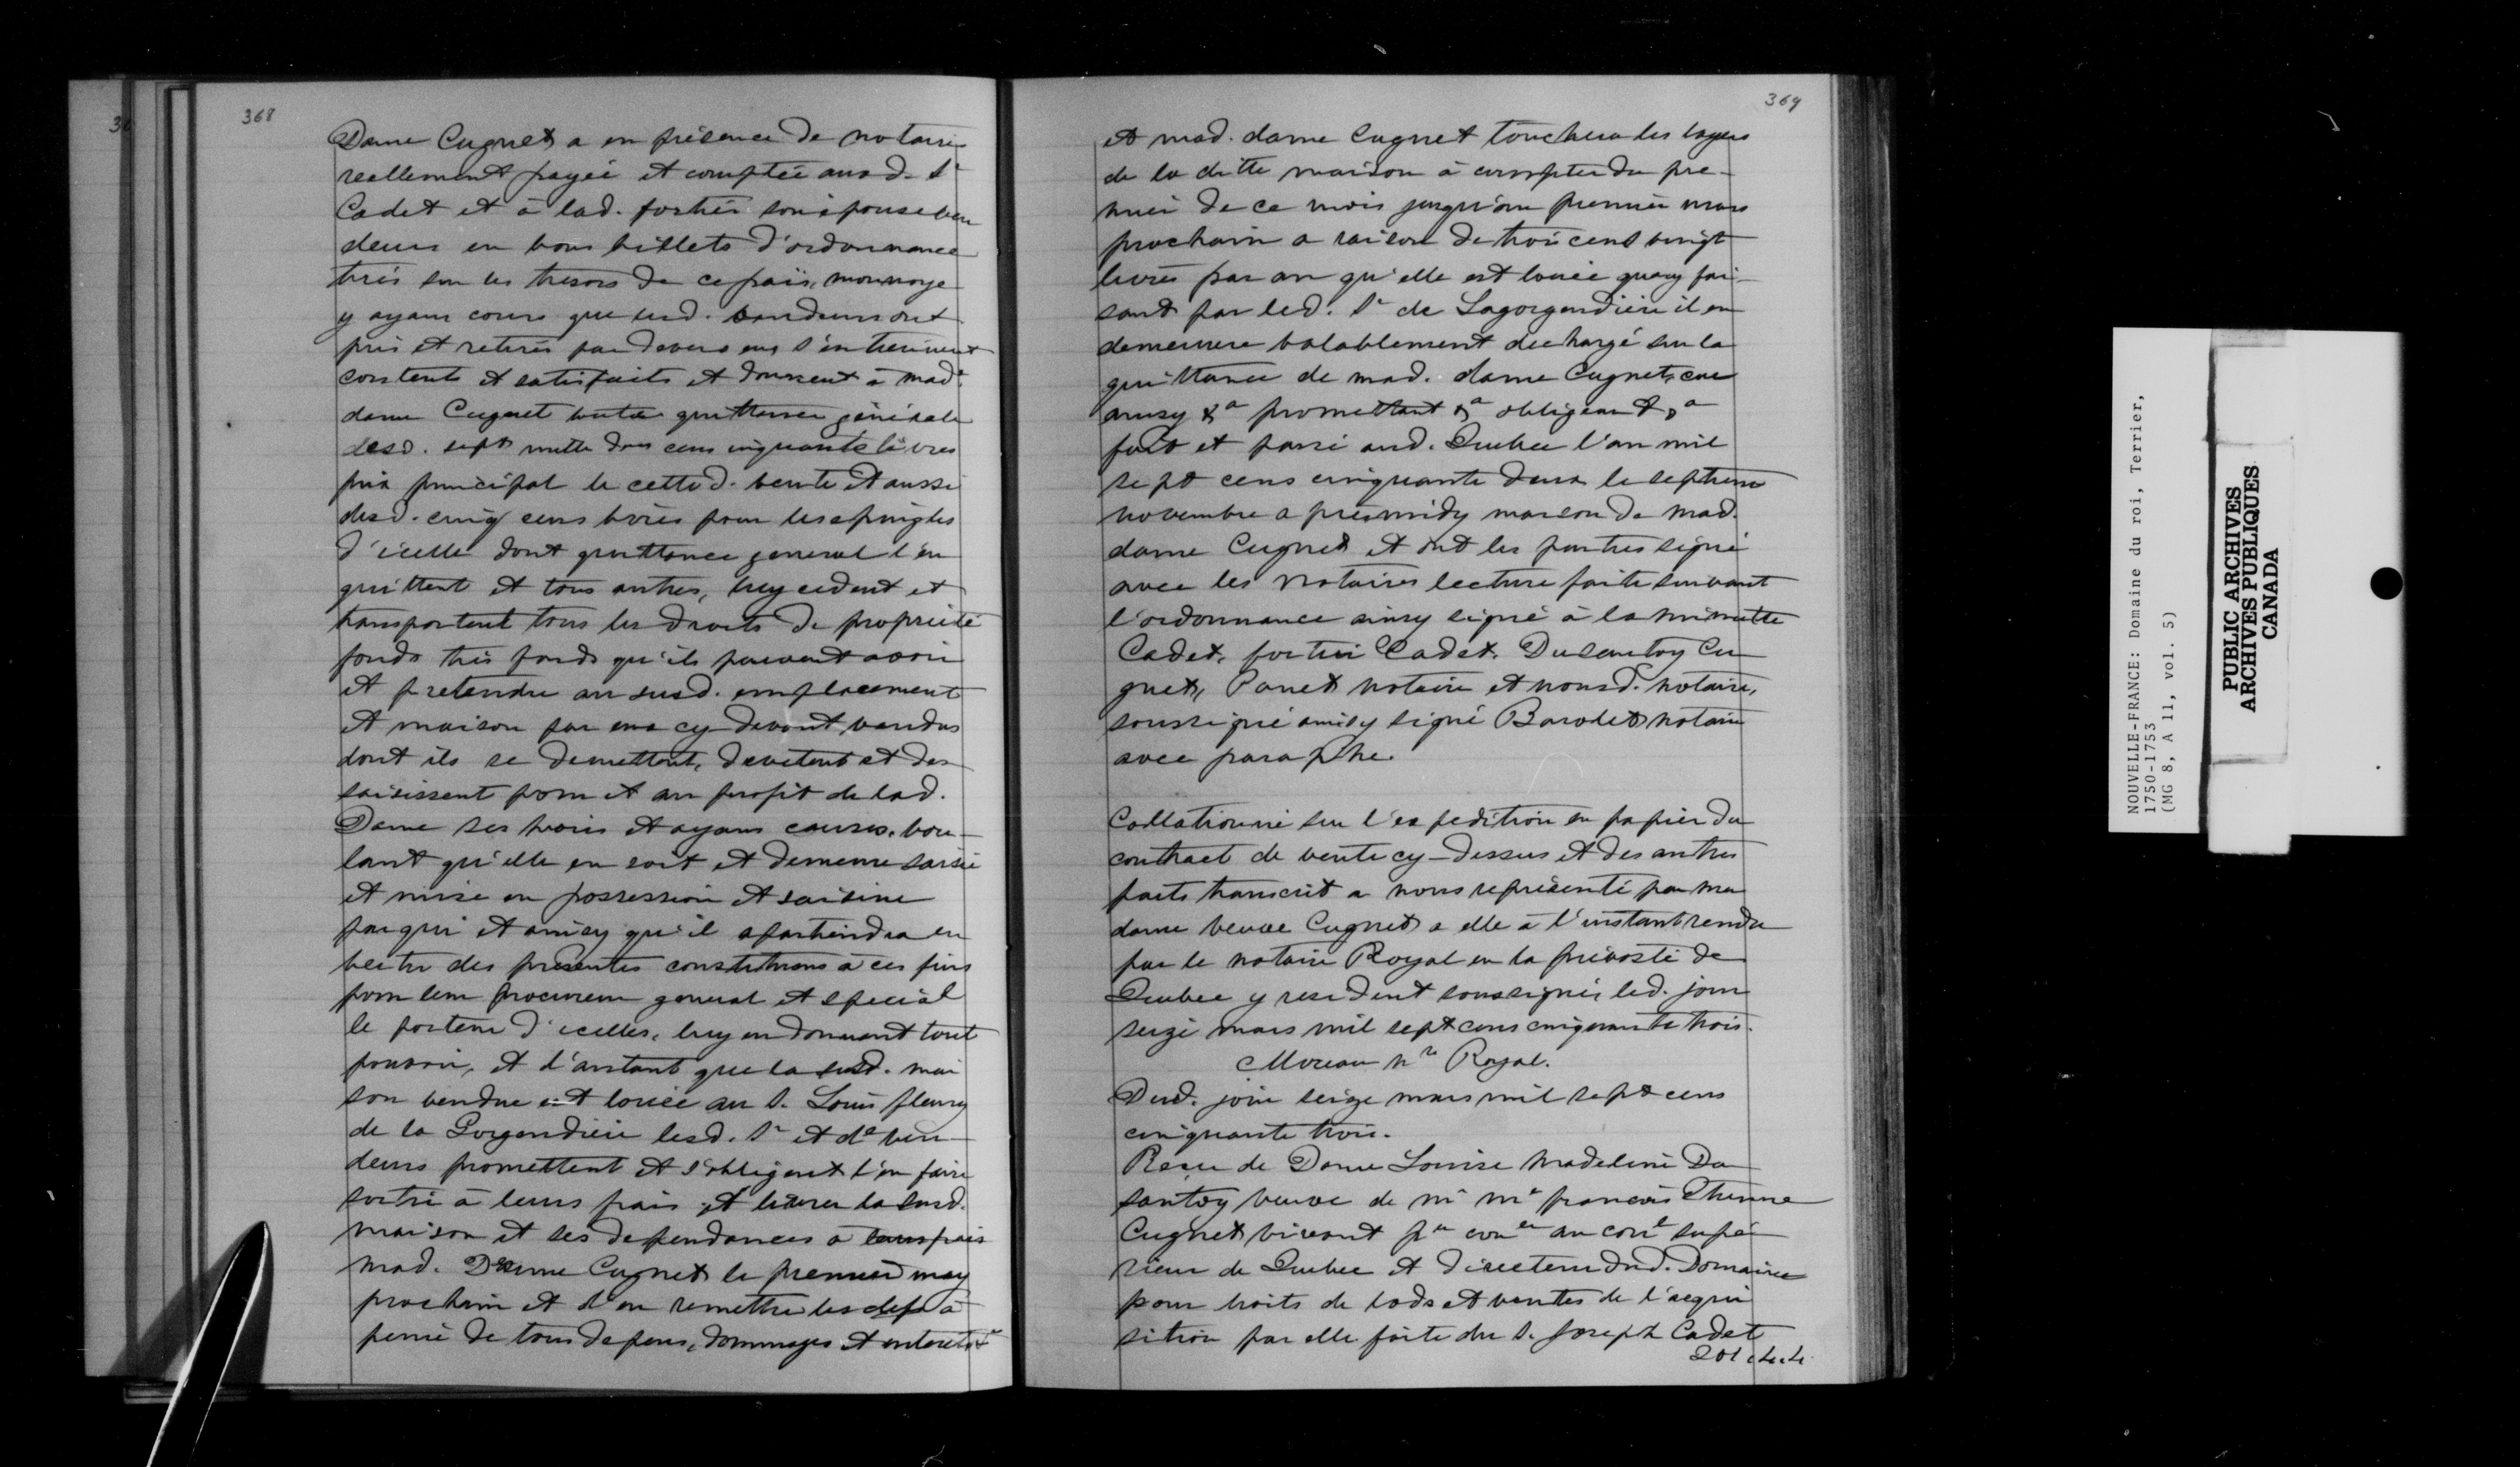 368
Dame Cugnet a en présence de notaires
reellement payée et comptée aus d. Sr
Cadet et à lad. fortier son épouse ven
deurs en bons billets d'ordonnance
tirés sur les tresors de ce païs, monnoye
y ayant cours que lesd. vendeurs ont
pris et retirés par devers eux s'en tiennent
contents et satisfaits et donnent à made
dame Cugnet toutte quittance générale
desd. sept mille deux cens cinquante livres
prix principal de cette d. vente et aussi
desd. cinq cens livres pour les epingles
d'icelle dont quittance general l'en
quittent et tous autres, luy cedent et
transportent tous les droits de propriété
fonds tres fonds qu'ils peuvent avoir
et pretendre au susd. emplacement
et maison par eux cy-devant vendus
dont ils se demettent, devetent et des
saisissent pour et au profit de lad.
Dame ses hoirs et ayans causes, vou-
lant qu'elle en soit et demeure saisie
et mise en possession et saisine
par qui et ainsy qu'il apartiendra en
vertu des présentes constituans à ces fins
pour leur procureur general et special
le porteur d'icelles, luy en donnant tout
pouvoir, et d'autant que la susd. mai
son vendue est louée au S. Louis fleury
de la Gorgendiere lesd. Sr et de ven-
deurs promettent et s'obligent l'en faire
sortir à leurs frais et livrer la susd.
maison et ses dependances à leurs frais
mad. Dame Cugnet le premier may
prochain et d'en remettre les clefs à
peine de tous depens, dommages et interets
369
et mad. dame Cugnet touchera les loyers
de la ditte maison à compter du pre-
mier de ce mois jusqu'au premier mars
prochain a raison de trois cens vingt
livres par an qu'elle est louée quoy fai-
sant par led. Sr de Lagorgendiere il en
demeurera valablement dechargé sur la
quittance de mad. dame Cugnet, car
ainsy &a promettant &a obligeant &a
fait et passé aud. Quebec l'an mil
sept cens cinquante deux le septieme
novembre après midy maison de mad.
dame Cugnet et ont les parties signé
avec les notaires lecture faite suivant
l'ordonnance ainsy signé à la minutte
Cadet, fortier Cadet, Dusautoy Cu
gnet, Panet notaire et nousd. notaire,
soussigné ainsy signé Barolet notaire
avec paraphe.
Collationné sur l'expedition en papier du
contract de vente cy-dessus et des autres
parts transcrit a nous représenté par ma
dame veuve Cugnet a elle à l'instant rendu
par le notaire Royal en la prévosté de
Quebec y resident soussigné, led. jour
seize mars mil sept cens cinquante trois.
Moreau nre Royal.
Dud. jour seize mars mil sept cens
cinquante trois.
Reçu de Dame Louise Madeleine Du
santoy veuve de mr me francois Etienne
Cugnet vivant pr coner au conl supé
rieur de Quebec et directeur dud. Domaine
pour droits de lods et ventes de l'acqui
sition par elle faite du S. Joseph Cadet
NOUVELLE-FRANCE: Domaine du roi, Terrier,
1750-1753
(MG 8, A 11, vol. 5)
PUBLIC ARCHIVES
ARCHIVES PUBLIQUES
CANADA